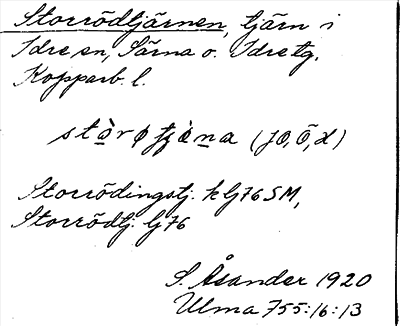 Storrödtjärnen, tjärn i
Idre sn, Särna o. Idre tg,
Kopparb. l.
Storrödingstj. k Lj76 SM,
Storrödtj. Lj76
S. Åsander 1920
Ulma 755:16:13